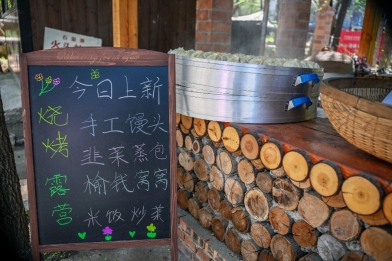 今日上新
手工馒头
韭菜蒸包
榆钱窝窝
米饭炒菜
烧烤露营